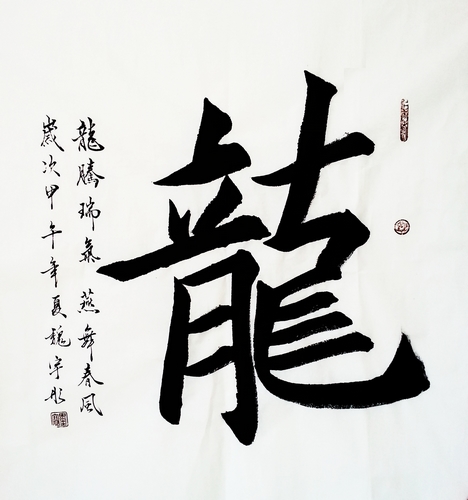 龍
龍騰瑞氣 燕舞春風
歲次甲午年夏魏宇彤